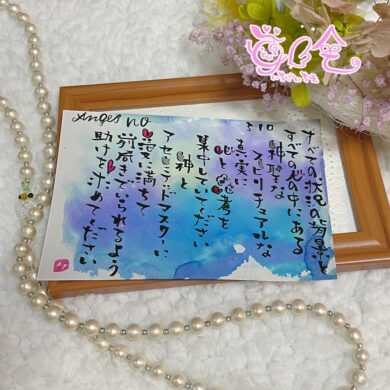 Anges no
510
すべての状況の背景と
すべての人の中にある
神聖な
スピリチュアルな
真実に
心と思考を
集中してください
神と
アセンデッドマスターに
愛に満ちて
前向きでいられるよう
助けを求めてください